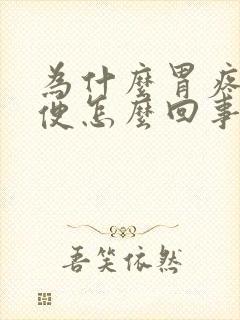 為什麼胃疼
便怎麼回事
吾笑依然